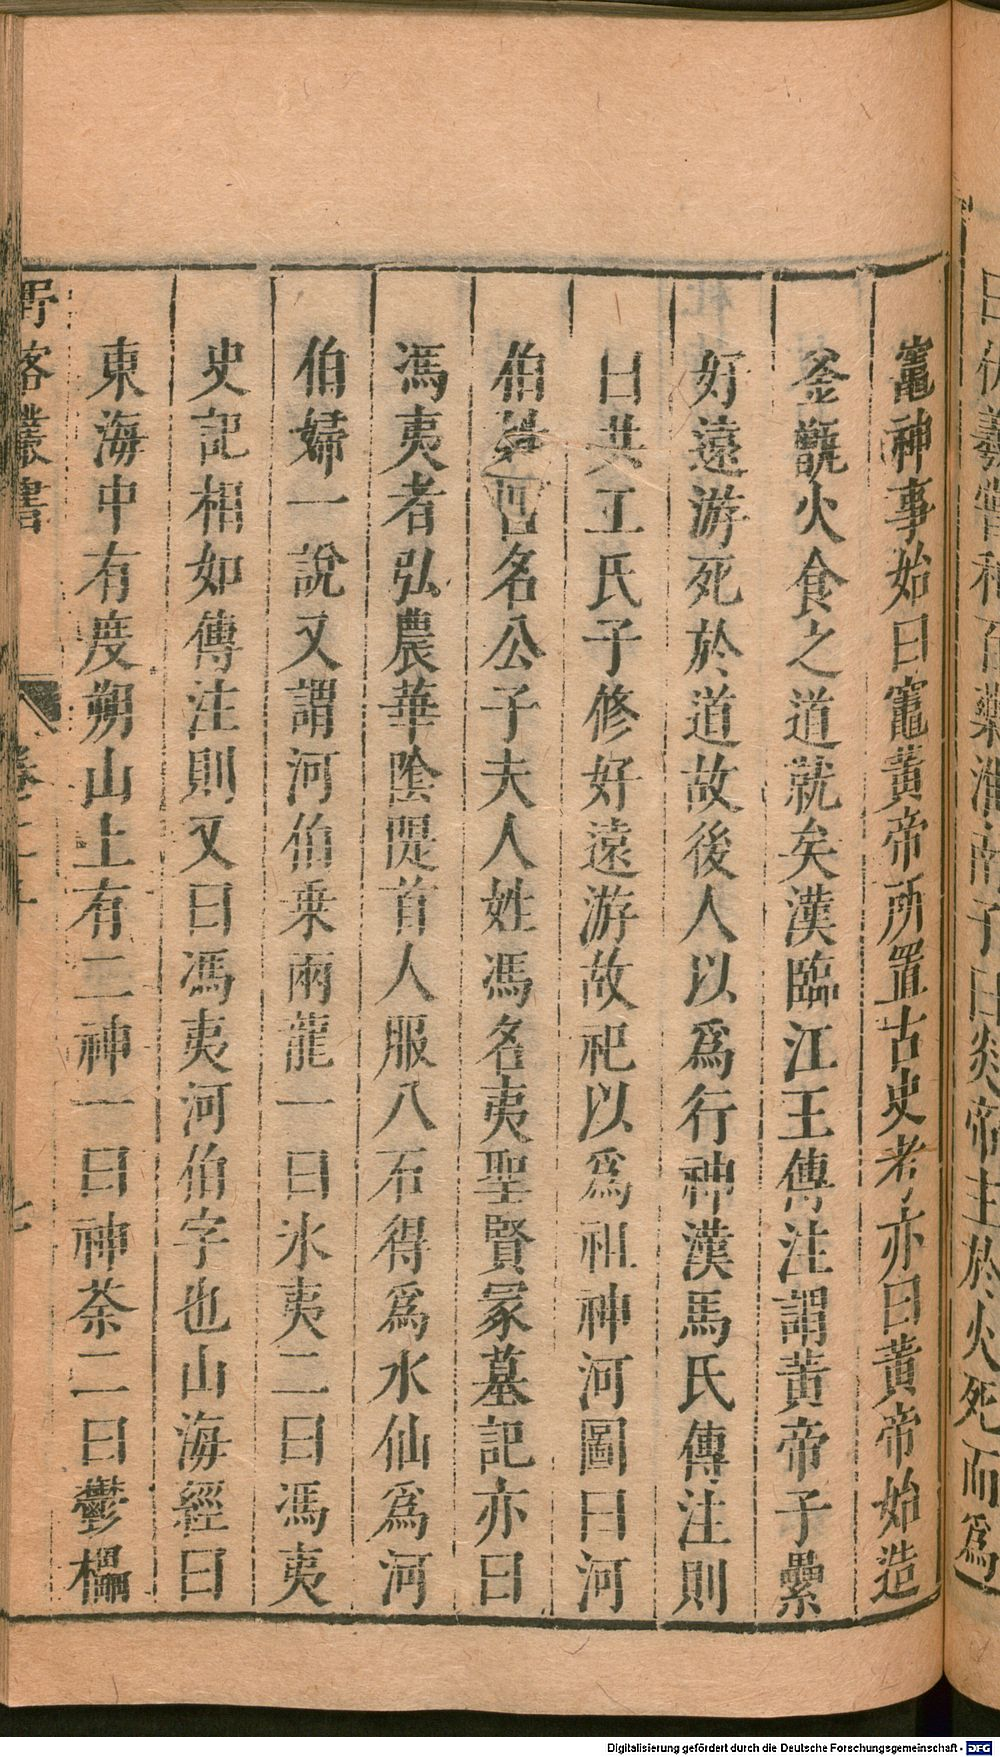 竈神事始曰竈黃帝所置古史考亦曰黃帝始造
釜甑火食之道就矣漢臨江王傳注謂黃帝子纍
好遠游死於道故後人以為行神漢馬氏傳注則
曰共工氏子修好遠游故祀以為祖神河圖曰河
伯姓呂名公子夫人姓馮名夷聖賢冢墓記亦曰
馮夷者弘農華陰隄首人服八石得為水仙為河
伯婦一說又謂河伯乗兩龍一曰氷夷二曰馮夷
史記相如傳注則又曰馮夷河伯字也山海經曰
東海中有度朔山上有二神一曰神荼二曰鬱櫑
野客叢書 卷二十 七
Digitalisierung gefördert durch die Deutsche Forschungsgemeinschaft - DFG